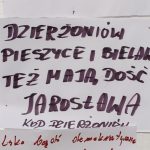 DZIERŻONIÓW
PIESZYCE I BIELAWA
TEŻ MAJĄ DOŚĆ
JAROSŁAWA
KOD DZIERŻONIÓW
bądź